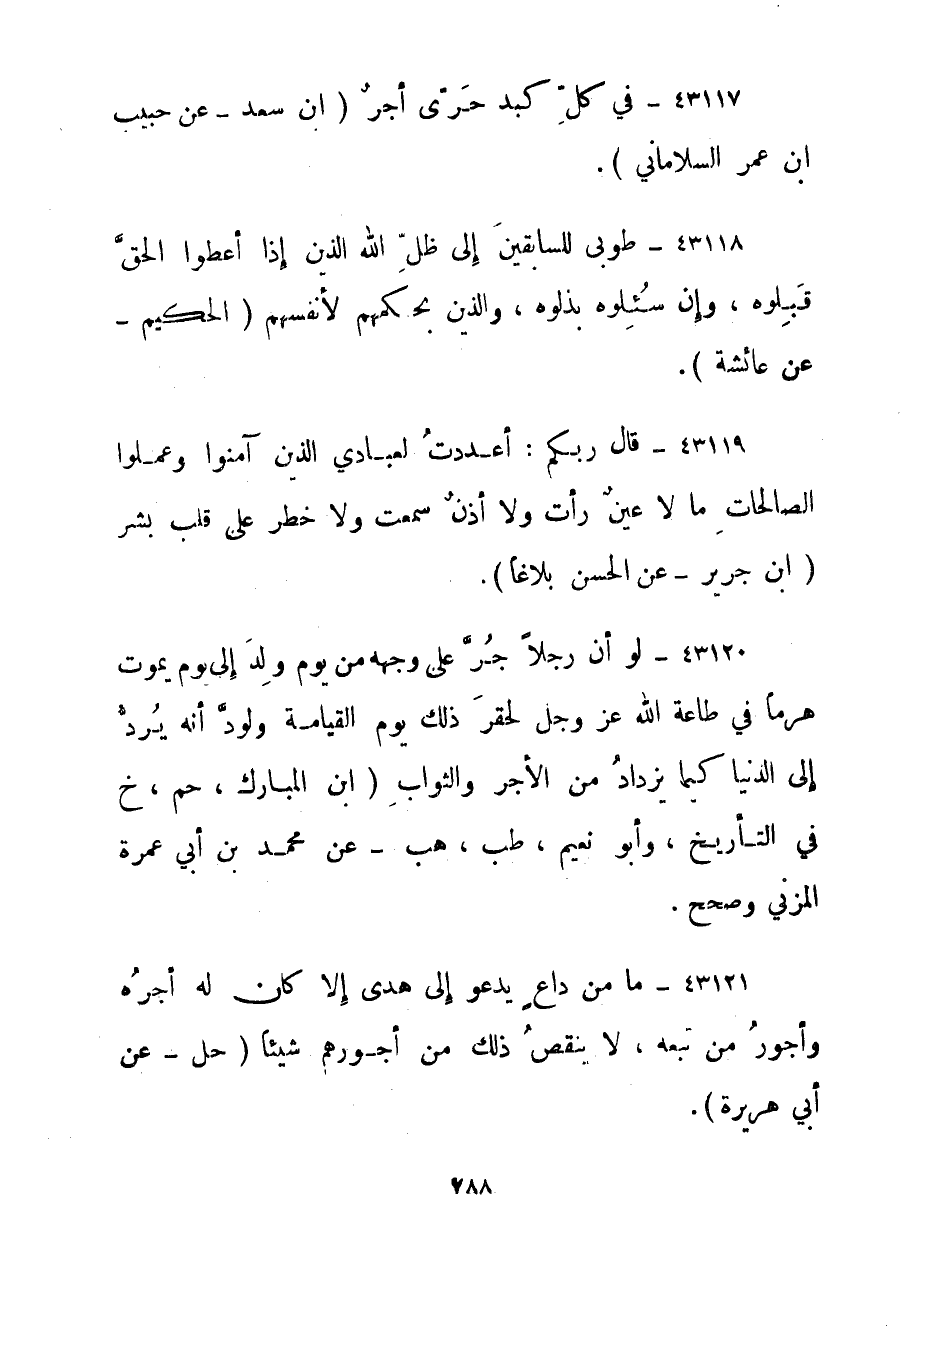 ٤٣١١٧ ــ في كلِّ كبد حَرّى أجرٌ ( ابن سعد ــ عن حبيب
ابن عمر السلاماني ) .
٤٣١١٨ ــ طوبى للسابقينَ إلى ظلِّ الله الذين إذا أعطوا الحقَّ
قَبِلوه ، وإن سُئِلوه بذلوه ، والذين يحكمهم لأنفسهم ( الحكيم ــ
عن عائشة ) .
٤٣١١٩ ــ قال ربكم : أعددتُ لعبادي الذين آمنوا وعملوا
الصالحاتِ ما لا عينٌ رأت ولا أذنٌ سمعت ولا خطر على قلب بشر
( ابن جرير ــ عن الحسن بلاغاً ) .
٤٣١٢٠ ــ لو أن رجلاً جُرَّ على وجهه من يوم ولِدَ إلى يوم يموت
هرماً في طاعة الله عز وجل لحقرَ ذلك يوم القيامة ولودَّ أنه يُردُّ
إلى الدنيا كيما يزدادُ من الأجر والثوابِ ( ابن المبارك ، حم ، خ
في التأريخ ، وأبو نعيم ، طب ، هب ــ عن محمد بن أبي عمرة
المزني وصحح .
٤٣١٢١ ــ ما من داعٍ يدعو إلى هدى إلا كان له أجرُه
وأجورُ من تبعه ، لا ينقصُ ذلك من أجورهم شيئاً ( حل ــ عن
أبي هريرة ) .
٢٨٨